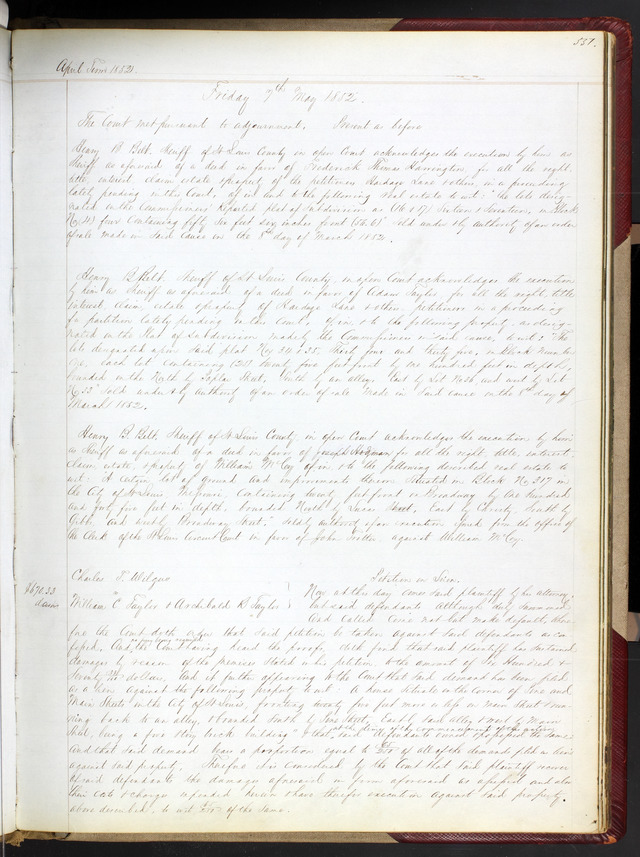 557.
April Term 1852.
Friday 7th May 1852.
The Court met pursuant to adjournment. Present as before
Henry B Belt Sheriff of St Louis County in open Court acknowledges the execution by him as
Sheriff as aforesaid of a deed in favor of Frederick Thomas Harrington for all the right,
title interest claim estate & property of the petitioners Hardage Lane & others, in a proceeding
lately pending in this Court, of in and to the following real estate to wit: the lots desig-
nated on the Commissioners Reported plat of Subdivision as
four containing fifty six feet six inches front sold under & by authority of an order
of sale made in said cause on the 8th day of March 1852.
Henry B Belt Sheriff of St Louis County in open Court acknowledges the execution
by him as Sheriff as aforesaid of a deed in favor of Adam Taylor for all the right, title
interest, claim, estate & property of Hardage Lane & others, petitioners in a proceeding
for partition lately pending in this Court, of in & to the following property as desig-
nated on the Plat of Subdivision made by the Commissioners in said cause, to wit: The
lots designated upon said plat Nos 34 & 35, thirty four and thirty five, in Block number
each lot containing (25) twenty five feet front by one hundred feet in depth,
bounded on the North by Poplar Street, South by an alley, East by Lot No 36 and west by Lot
No 33 sold under & by authority of an order of sale made in said cause on the 8th day of
March 1852.
Henry B Belt Sheriff of St Louis County in open Court acknowledges the execution by him
as Sheriff as aforesaid of a deed in favor of Joseph for all the right, title, interest,
claim, estate, & property of William McCoy of in & to the following described real estate to
wit: A certain lot of ground and improvements thereon situated in Block No 317 in
the City of St Louis Missouri, containing twenty feet front on Broadway by one hundred
and forty five feet in depth, bounded North by Street, East by South by
and west by Broadway Street, sold by authority of an execution issued from the office of
the Clerk of the St Louis Circuit Court in favor of John against William McCoy.
Charles F. Petition in Lien.
$670.33
William C Taylor & Archibald B Taylor } Now at this day comes said plaintiff by his attorney,
and said defendants although duly summoned
and called come not but make default, there-
fore the Court doth order that said petition be taken against said defendants as con-
fessed, And the Court having heard the proofs, doth find that said plaintiff has sustained
damages by reason of the premises stated in his petition to the amount of Six Hundred &
Seventy dollars. And it further appearing to the Court that said demand has been filed
as a lien against the following property to wit: A house situate on the corner of and
Main Streets in the City of St Louis, fronting twenty five feet more or less on Main Street run-
ning back to an alley, & bounded South by Street, East by said alley & west by Main
Street, being a five story brick building
And that said demand bears a proportion equal to of all of the demands filed as liens
against said property. Therefore it is considered by the Court that said plaintiff recover
of said defendants the damages aforesaid in form aforesaid as assessed and also
their costs & charges expended herein & have therefor execution against said property
above described, to wit of the same.